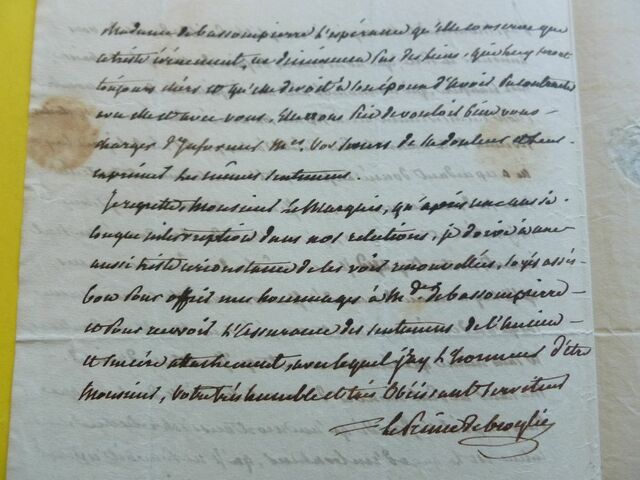 Madame de bassompierre l'espérance qu'elle conserve que
ce triste événement, ne diminuera pas des liens, qui luy sont
toujours chers et qu'elle devoit à son époux d'avoir pu contracter
avec vous. Elle vous prie de vouloir bien vous
charger d'Informer Mes. vos sœurs de sa douleur et leur
exprimer les mêmes sentimens.
Je regrette, Monsieur le Marquis, qu'après une aussi
longue interruption dans nos relations, je doive à une
aussi triste circonstance de les voir renouvellées, soyés assés
bon pour offrir mes hommages à Mde. de bassompierre
et pour recevoir l'assurance des sentimens de l'ancien
et sincère attachement, avec lequel j'ay l'honneur d'être
Monsieur, votre très humble et très Obéissant serviteur
le Prince de broglie